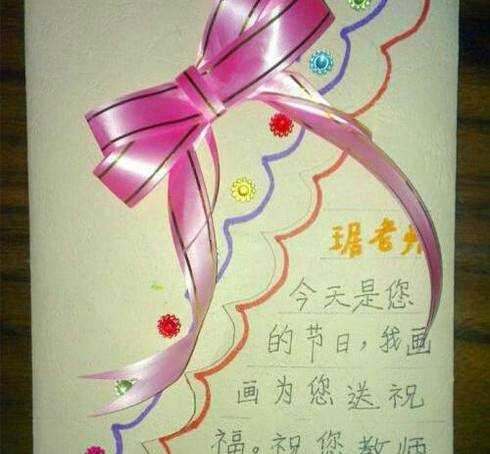 琚老师
今天是您
的节日，我画
画为您送祝
福。祝您教师